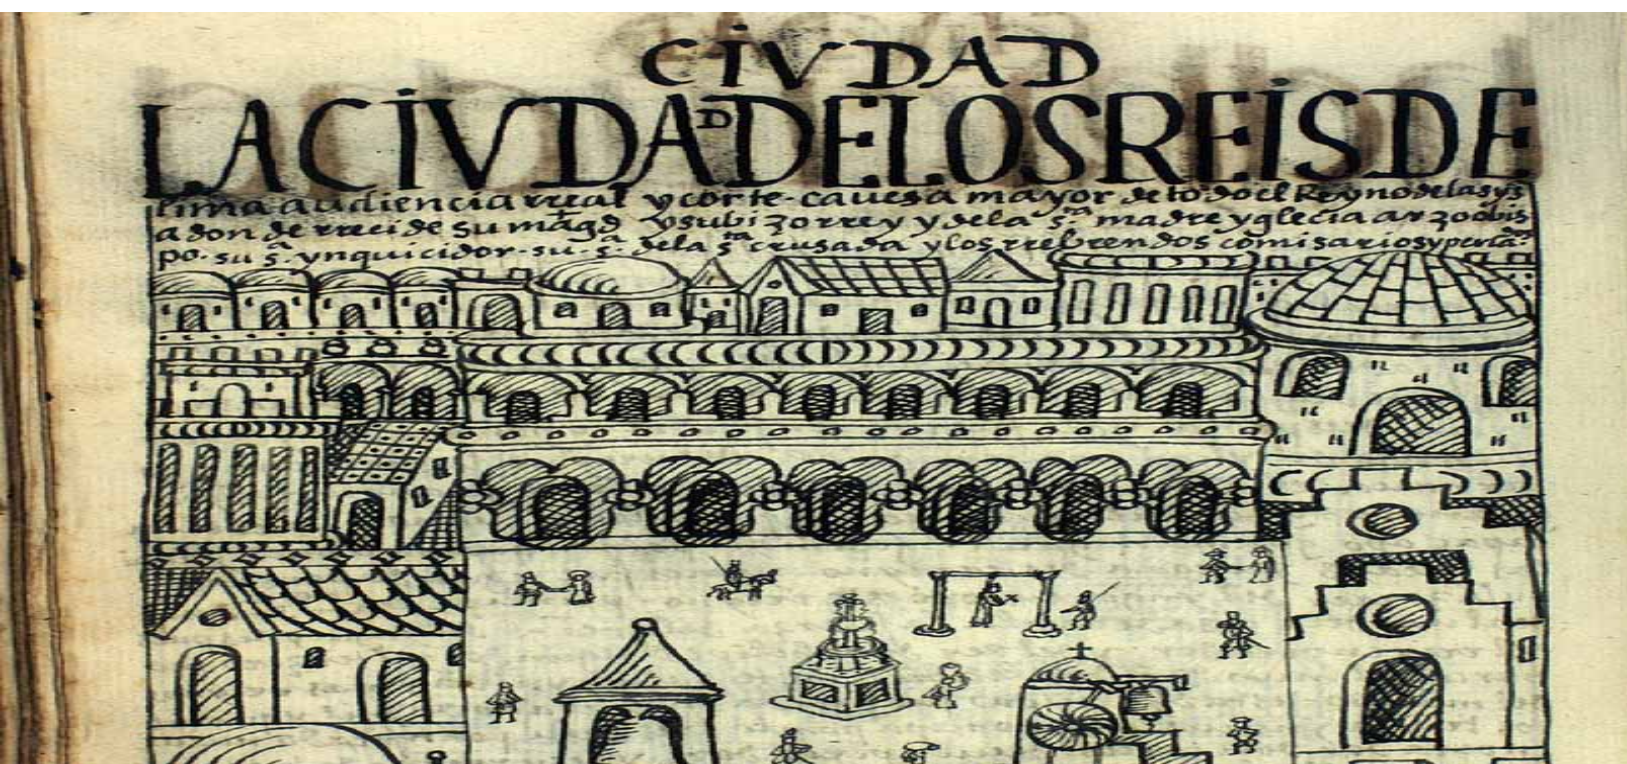 CIVDAD
LA CIVDAD DE LOS REIS DE
lima audiencia rreal y corte. cauesa mayor de todo el Reyno de las yns
a donde rreci de su magd y su bizorrey y de la sta madre yglecia arzoobis
po. su sa. ynquicidor. su. sa. de la sta crusada y los rreberendos comisarios y perlados